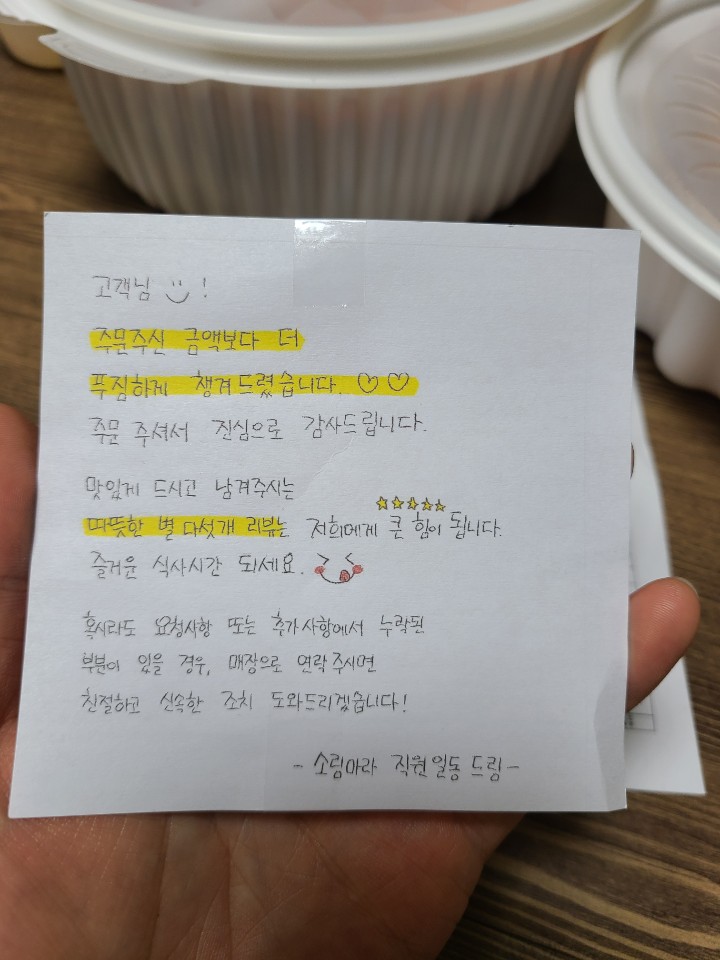 고객님 !
주문주신 금액보다 더
푸짐하게 챙겨드렸습니다. ♡♡
주문 주셔서 진심으로 감사드립니다.
맛있게 드시고 남겨주시는
따뜻한 별 다섯개 리뷰는 저희에게 큰 힘이 됩니다.
즐거운 식사시간 되세요.
혹시라도 요청사항 또는 추가사항에서 누락된
부분이 있을 경우, 매장으로 연락주시면
친절하고 신속한 조치 도와드리겠습니다!
- 소림마라 직원일동 드림 -